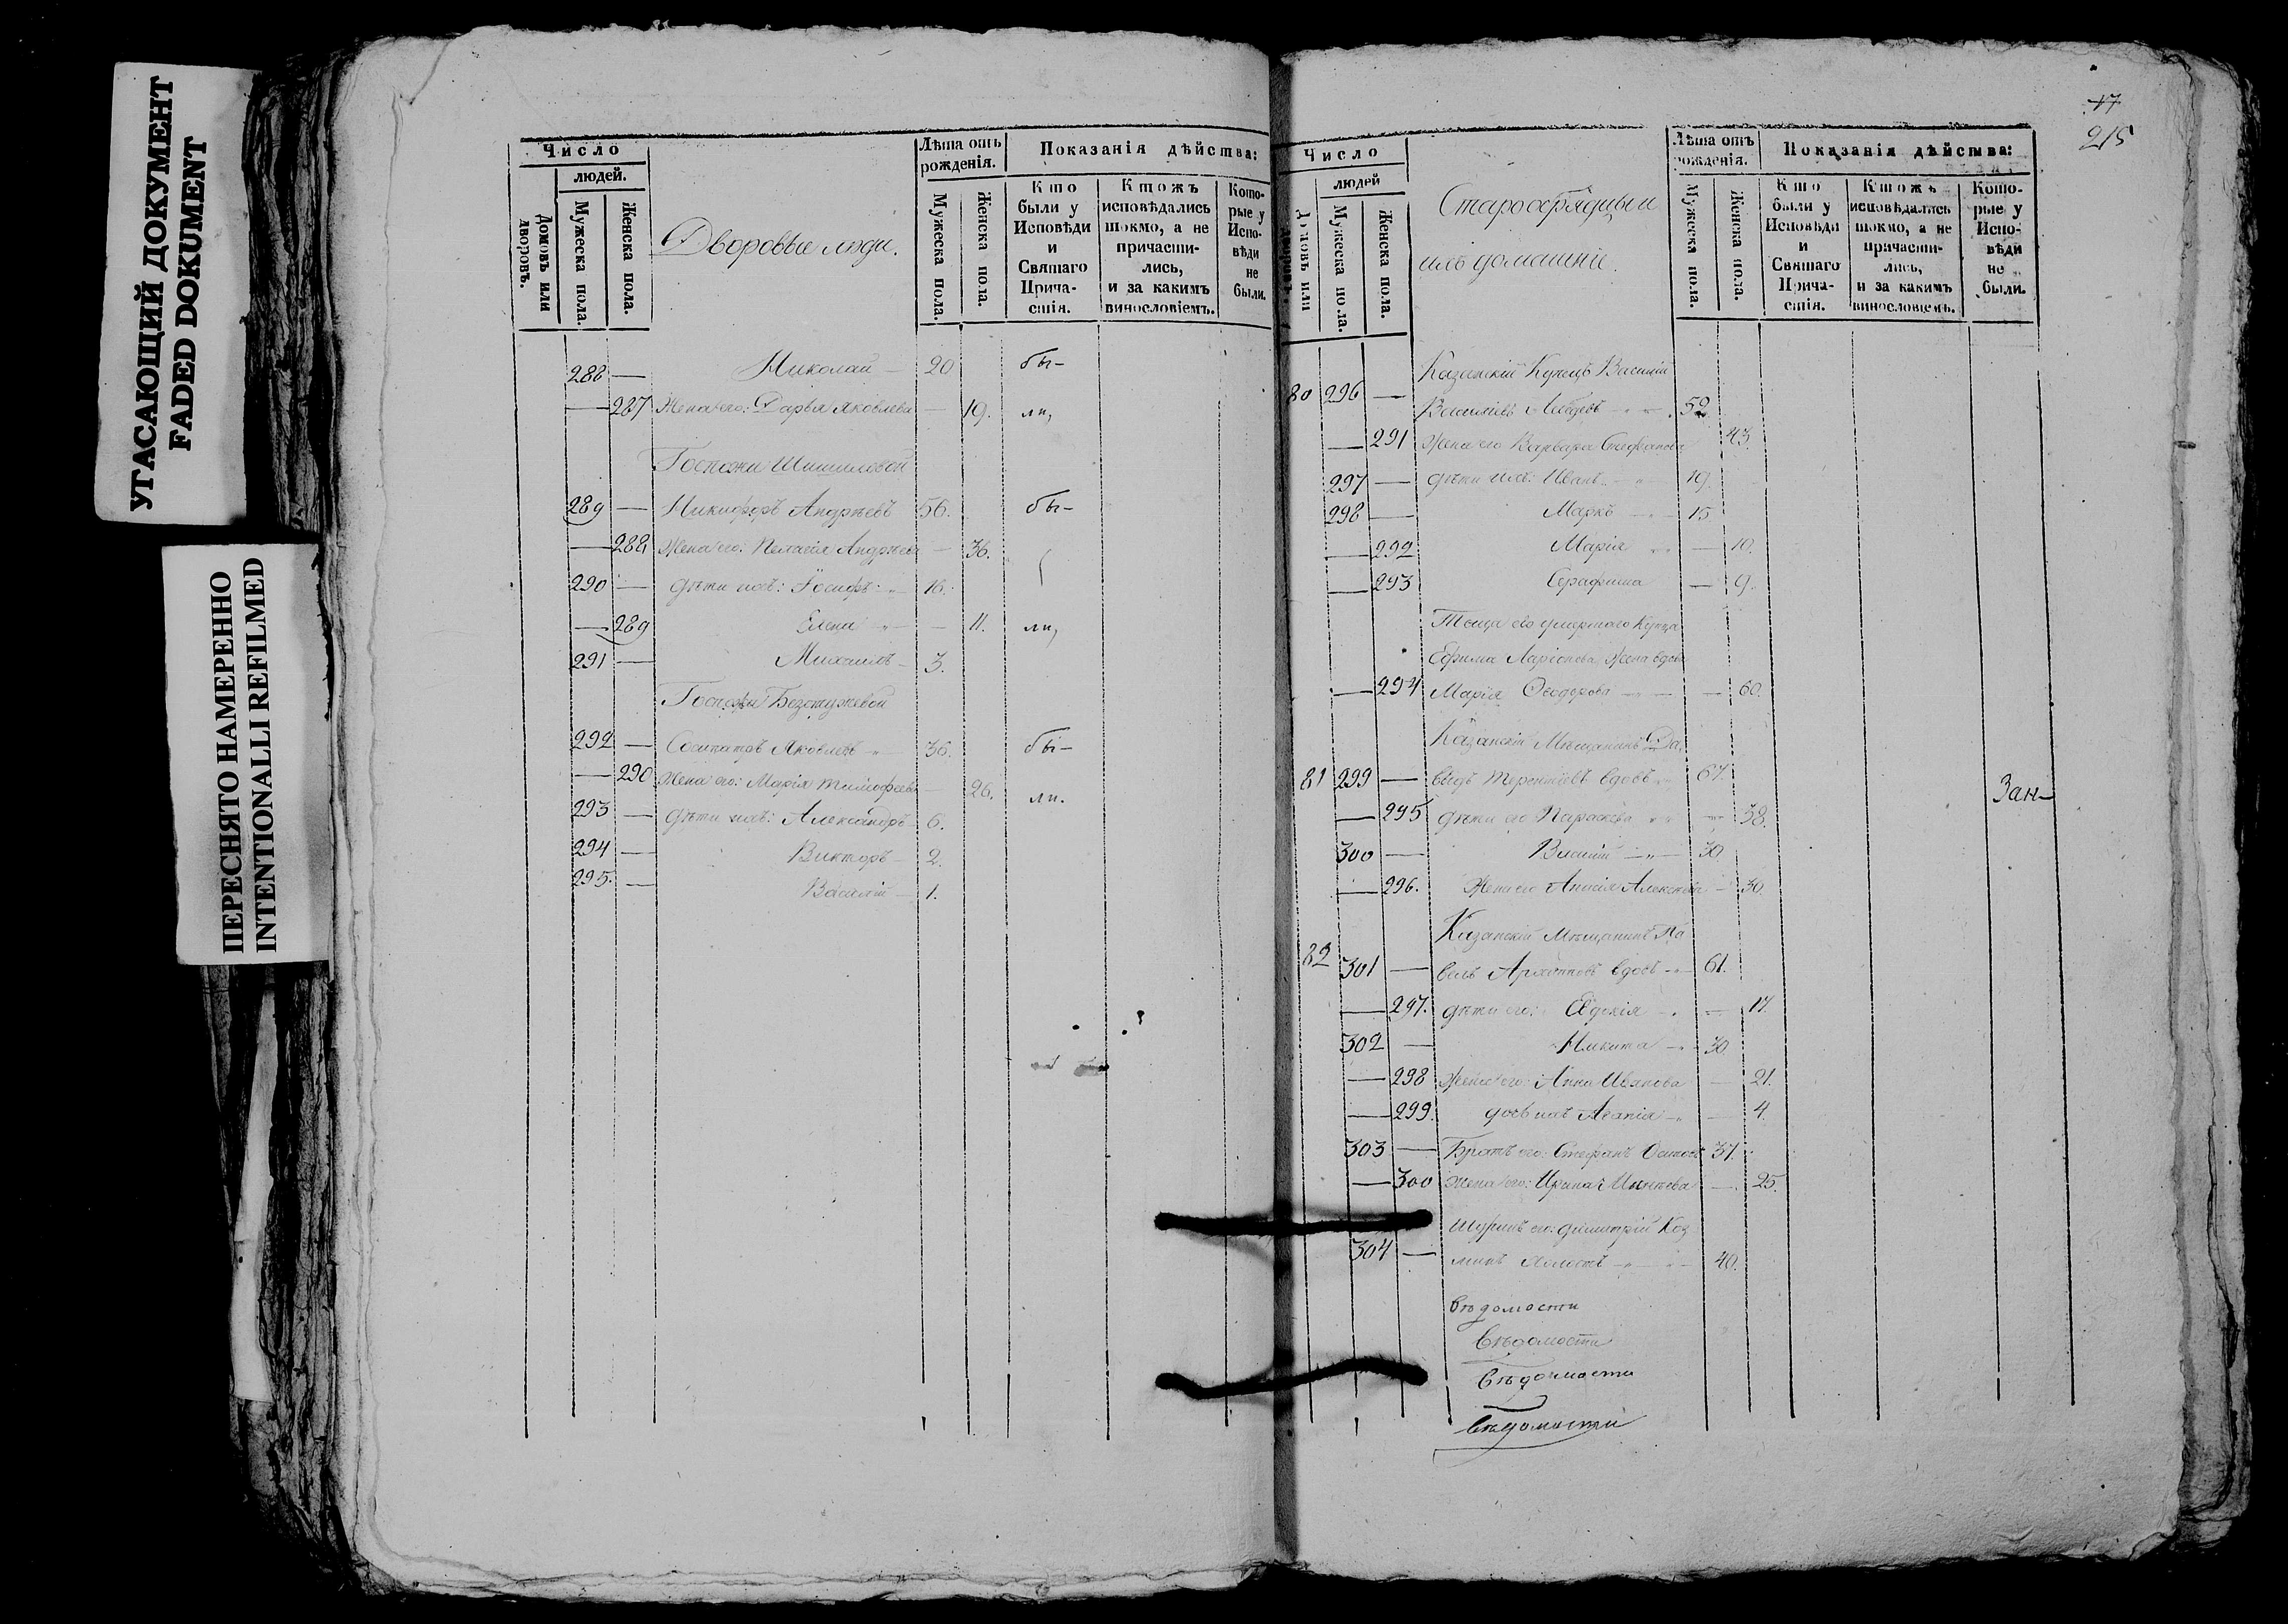 УГАСАЮЩИЙ ДОКУМЕНТ
FADED DOKUMENT
ПЕРЕСНЯТО НАМЕРЕННО
INTENTIONALLI REFILMED
Число
людей.
Домовъ или дворовъ.
Мужеска пола.
Женска пола.
Дворовые люди.
Лѣта отъ рожденія.
Мужеска пола.
Женска пола.
Показанія дѣйства:
Кто были у Исповѣди и Святаго Причастія.
Ктожъ исповѣдались токмо, а не причастились, и за какимъ винословіемъ.
Которые у Исповѣди не были.
288 — Николай — 20 бы-
— 287 Жена его: Дарья Яковлева — 19. ли,
Госпожи
289 — Никифоръ Андреевъ 56. бы-
— 288 Жена его: Пелагія Андреева — 36.
290 — дѣти ихъ: Іосифъ 16.
— 289 Елена — 11. ли,
291 — Михаилъ — 3.
Госпожи Безстужевой
292 — Сосипатръ Яковлевъ 36. бы-
— 290 Жена его: Марія Тимофеева — 26. ли.
293 — Дѣти ихъ: Александръ — 6.
294 — Викторъ — 2.
295. — Василій — 1.
17
215
Число
людей
Домовъ или дворовъ.
Мужеска пола.
Женска пола.
Старообрядцы и
ихъ домашніе.
Лѣта отъ рожденія.
Мужеска пола.
Женска пола.
Показанія дѣйства:
Кто были у Исповѣди и Святаго Причастія.
Ктожъ исповѣдались токмо, а не причастились, и за какимъ винословіемъ.
Которые у Исповѣди не были.
Казанскій Купецъ Василій
80 296 — Васильевъ 52
— 291 Жена его Варвара Стефанова 43.
297 — дѣти ихъ: Иванъ 19.
298 — Маркъ — 15
— 292 Марія — 10.
— 293 Серафима — 9.
Теща его умершаго Купца
Ефима Ларіонова Жена вдова
— 294 Марія Ѳеодорова — 60.
Казанскій Мѣщанинъ Да
81 299 — выдъ Терентьевъ вдовъ 67. Зан-
— 295 дѣти его Параскева — 38.
300 — Василій — 30
— 296. Жена его Анисія Алексѣева — 30.
Казанскій Мѣщанинъ Па
82 301 — велъ вдовъ — 61.
— 297. дѣти его: Евдокія — 17.
302 — Никита — 30
— 298 Жена его: Анна Иванова — 21.
— 299. дочь ихъ Агапія — 4.
303 — Братъ его: Стефанъ 37.
— 300 Жена его: Ирина — 25.
Шуринъ его: Димитрій Коз
304 — минъ 40.
вѣдомости
Вѣдомости
Вѣдомости
вѣдомости